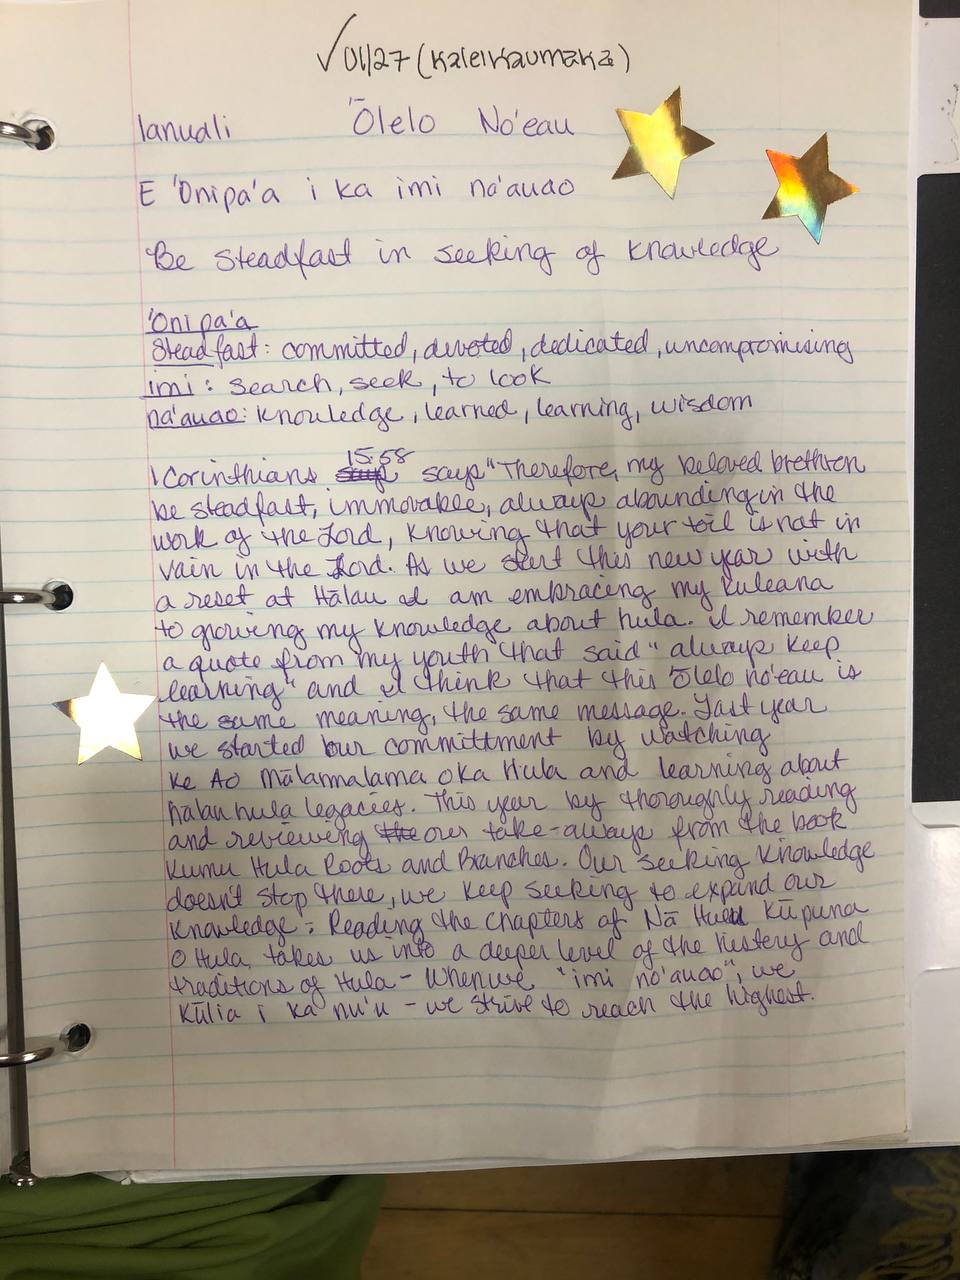 ✓01/27 (Kaleikaumaka)
Ianuali ʻŌlelo No'eau
E 'Onipa'a i ka imi na'auao
Be steadfast in seeking of knowledge
'Onipa'a
Steadfast: committed, devoted, dedicated, uncompromising
imi: search, seek, to look
na'auao: knowledge, learned, learning, wisdom
1 Corinthians 15:58 says "Therefore, my beloved brethren
be steadfast, immovable, always abounding in the
work of the Lord, knowing that your toil is not in
vain in the Lord. As we start this new year with
a reset at Hālau I am embracing my kuleana
to growing my knowledge about hula. I remember
a quote from my youth that said "always keep
learning" and I think that this Ōlelo no'eau is
the same meaning, the same message. Last year
we started our committment by watching
Ke Ao Mālamalama oka Hula and learning about
hālau hula legacies. This year by thoroughly reading
and reviewing our take-aways from the book
Kumu Hula Roots and Branches. Our seeking knowledge
doesn't stop there, we keep seeking to expand our
knowledge: Reading the chapters of Nā Kūpuna
O Hula takes us into a deeper level of the history and
traditions of Hula - When we "imi na'auao", we
Kūlia i ka nu'u - we strive to reach the highest.